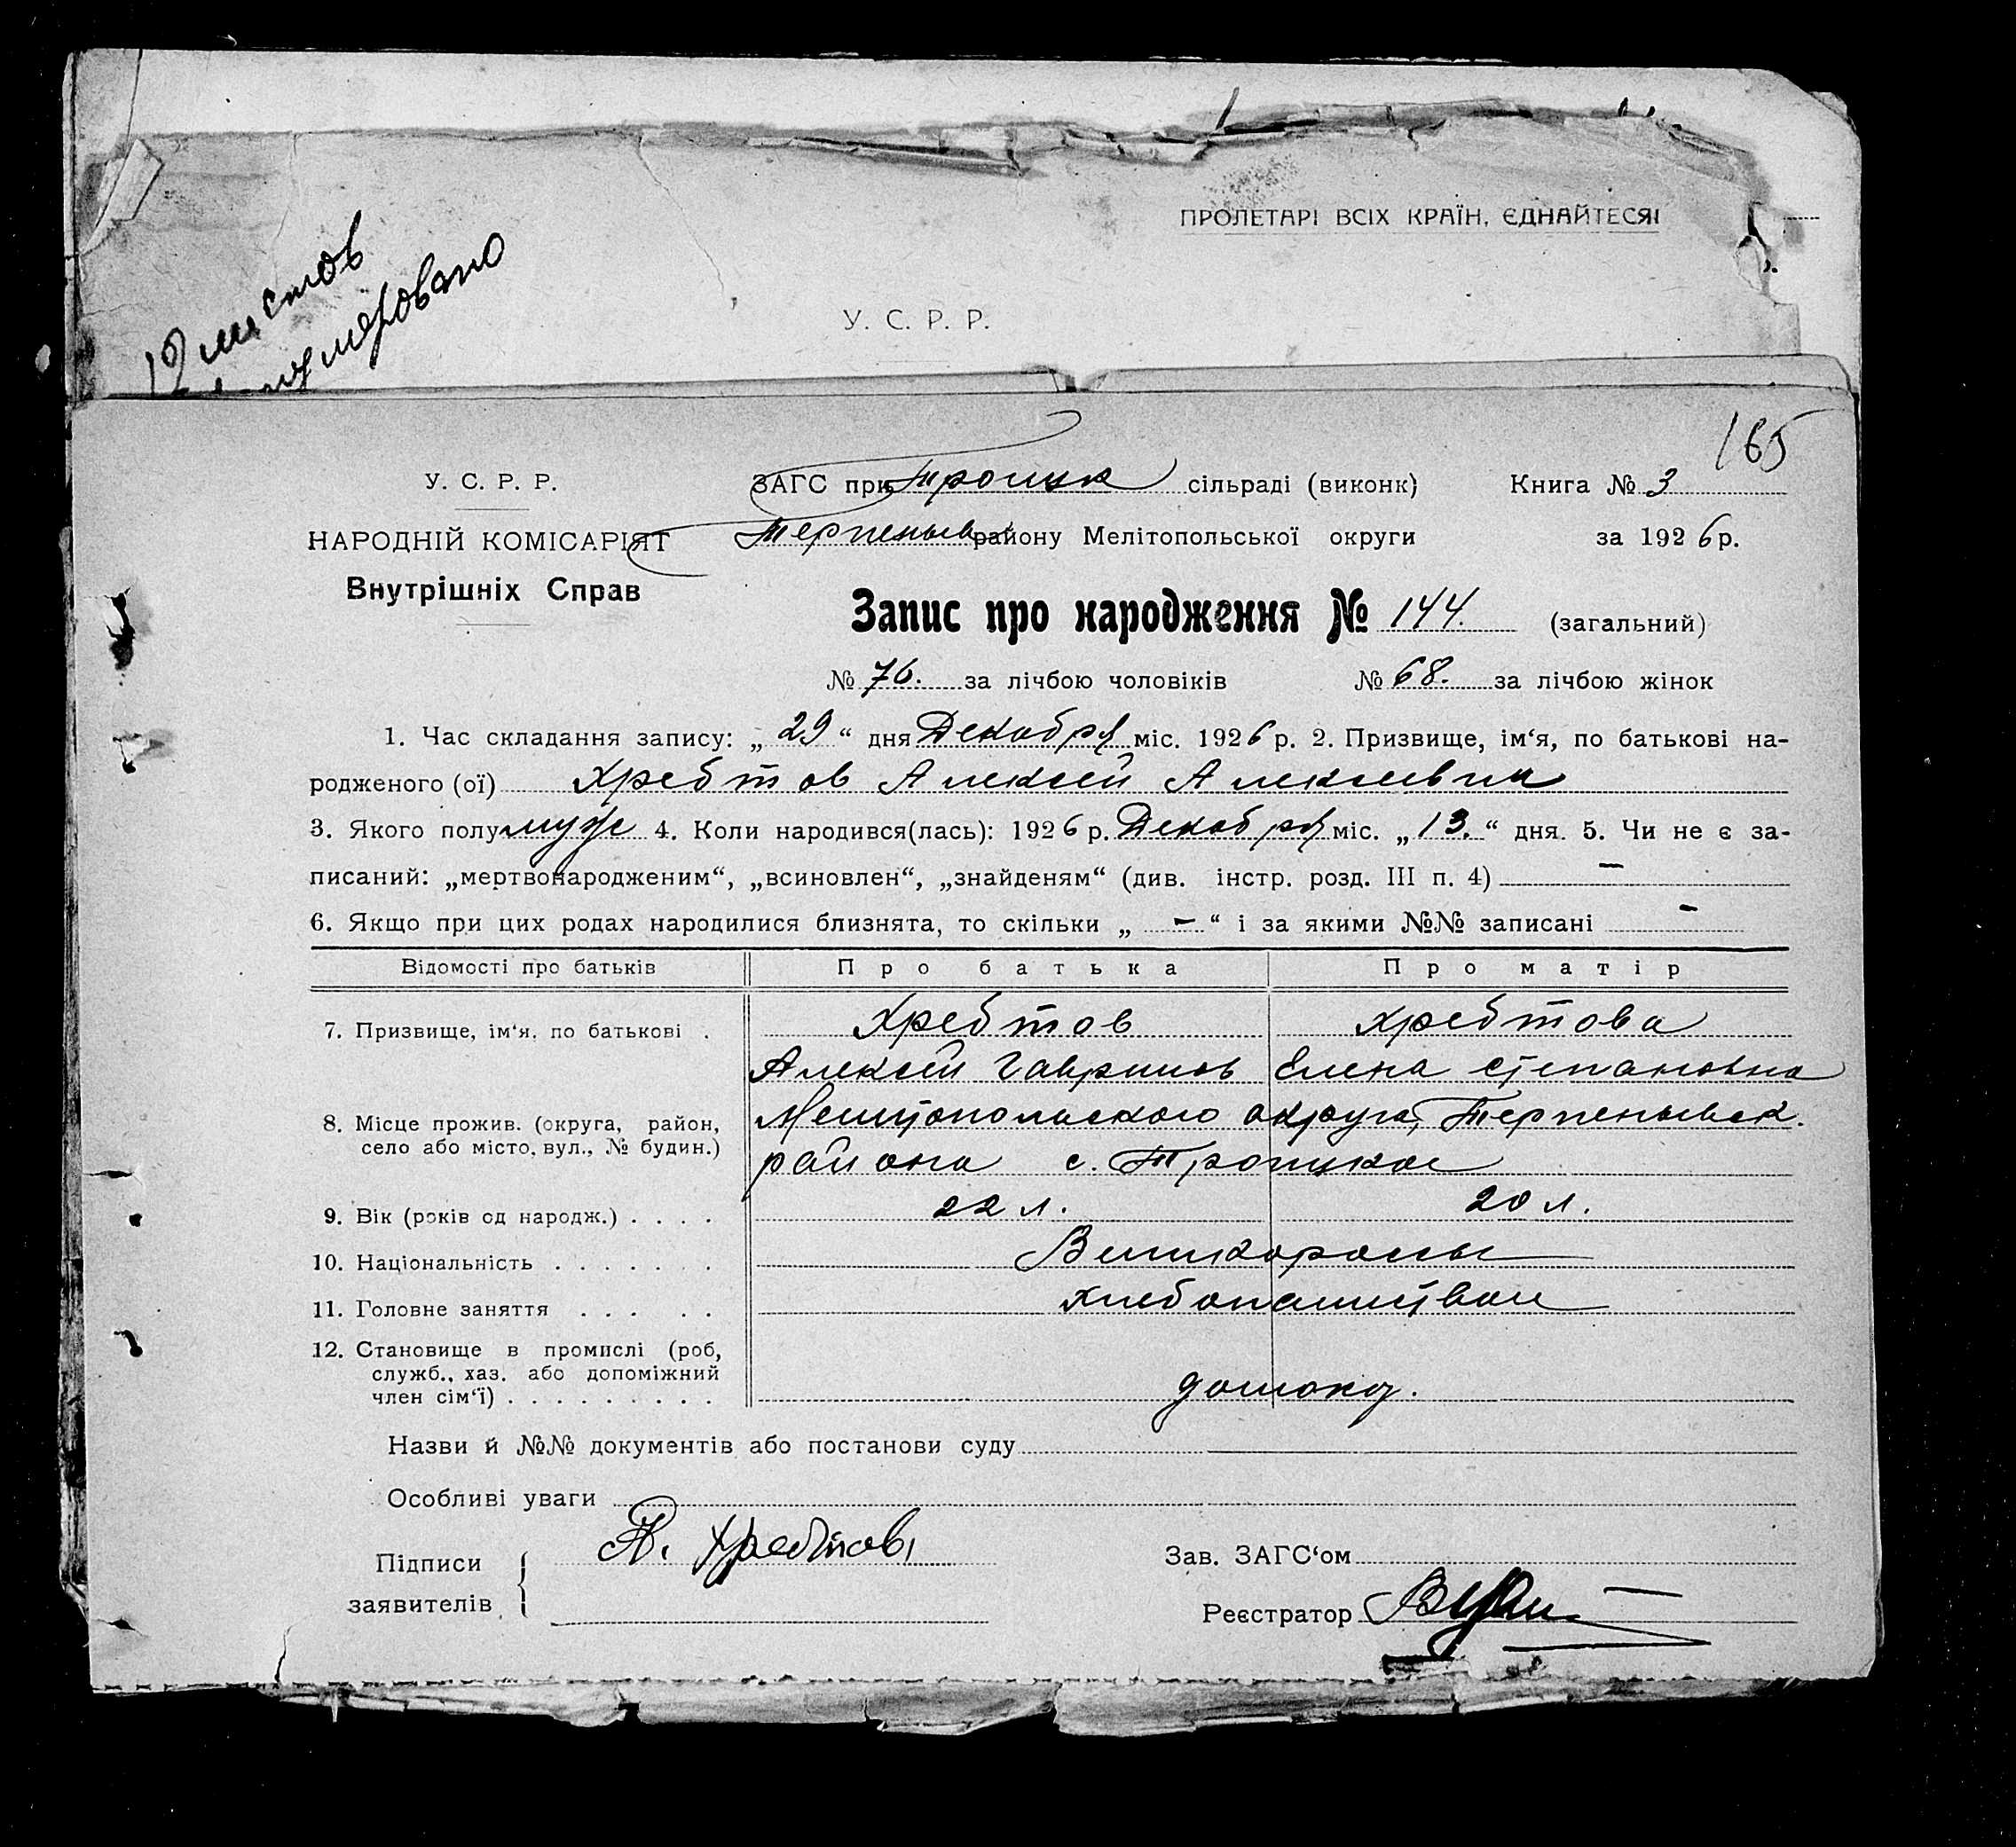 ПРОЛЕТАРІ ВСІХ КРАЇН, ЄДНАЙТЕСЯ!
У. С. Р. Р.
листов
165
У. С. Р. Р.
НАРОДНІЙ КОМІСАРІЯТ
Внутрішніх Справ
ЗАГС при Троицк сільраді (виконк) Книга № 3
району Мелітопольської округи за 1926 р.
Запис про народження № 144. (загальний)
№ 76. за лічбою чоловіків № 68. за лічбою жінок
1. Час складання запису: „29“ дня Декабря міс. 1926 р. 2. Призвище, ім‘я, по батькові на-
родженого (ої) Хребтов Алексей Алексеевич
3. Якого полу муж 4. Коли народився(лась): 1926 р. Декабря міс. „13.“ дня. 5. Чи не є за-
писаний: „мертвонародженим“, „всиновлен“, „знайденям“ (див. інстр. розд. III п. 4) —
6. Якщо при цих родах народилися близнята, то скільки „ — “ і за якими №№ записані —
Відомості про батьків Про батька Про матір
7. Призвище, ім‘я, по батькові . Хребтов Хребтова
Алексей Гаврилов Елена Степановна
8. Місце прожив. (округа, район, село або місто, вул., № будин.) Мелитопольского округа,
района с. Троицкое
9. Вік (років од народж.) . . . . 22 л. 20 л.
10. Національність . . . . . . . Великороссы
11. Головне заняття . . . . . хлебопашеством
12. Становище в промислі (роб,
служб., хаз. або допоміжний
член сім‘ї) . . . . . . . . .
Назви й №№ документів або постанови суду
Особливі уваги
Підписи
заявителів
А. Хребтов
Зав. ЗАГС‘ом
Реєстратор